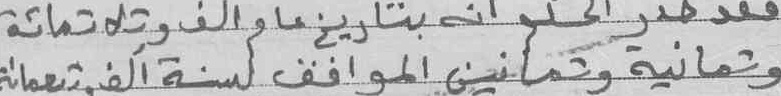 فقد صدر الحكم انه بتاريخ عام الف وثلاثمائة
وثمانية وثمانين الموافق لسنة الف تسعمائة